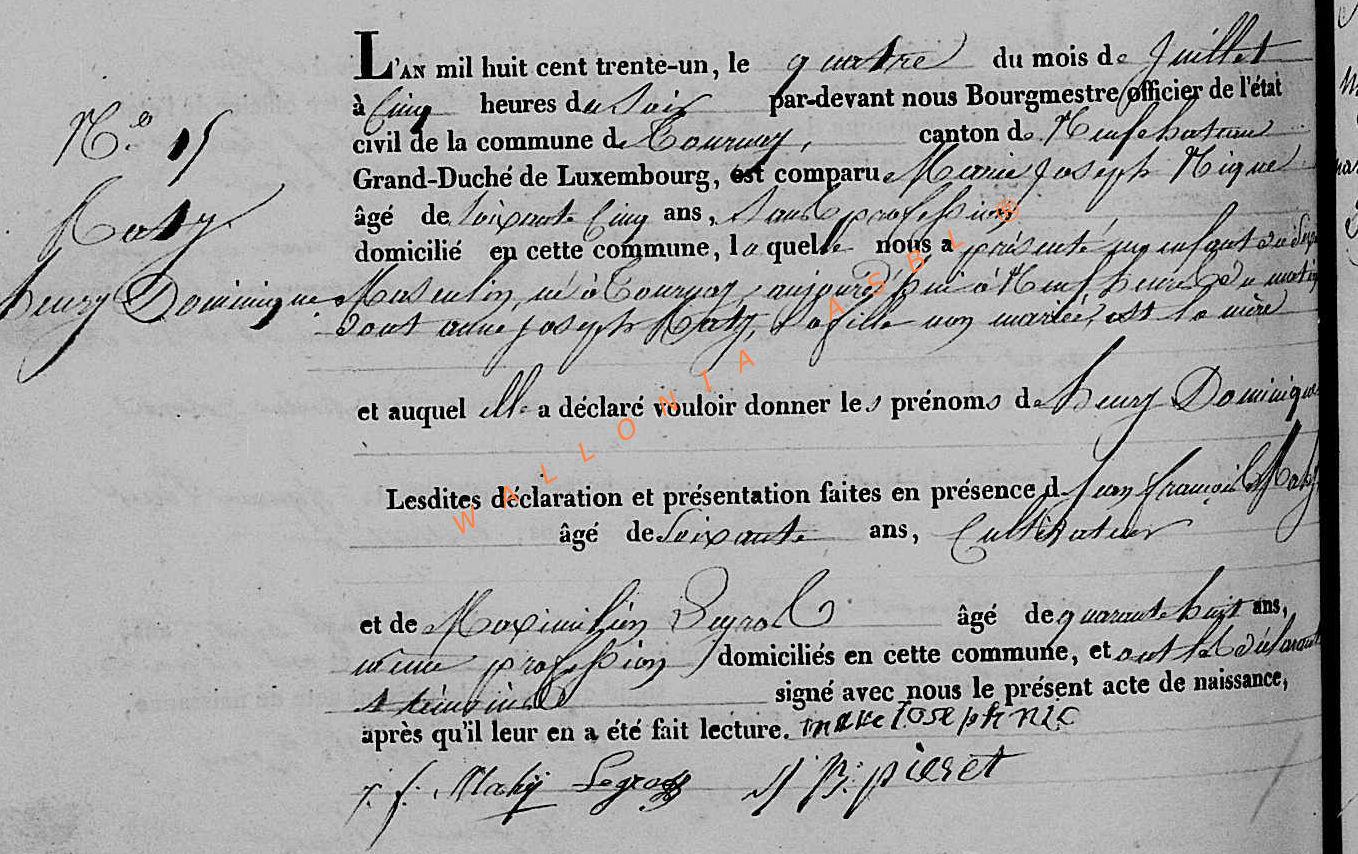 L'AN mil huit cent trente-un, le quatre du mois de Juillet
à Cinq heures du Soir par-devant nous Bourgmestre officier de l'état
N.º 15
civil de la commune de Tournay, canton de Neufchateau
Grand-Duché de Luxembourg, est comparue Marie Joseph Nique
Katy
âgé de Soixante Cinq ans, Sans profession
domicilié en cette commune, laquelle nous a présenté un enfant du Sexe
henry Dominique
Masculin, né à Tournay, aujourd'hui à Neuf heures du matin
dont anne joseph Katy, Sa fille non mariée, est la mère
et auquel elle a déclaré vouloir donner les prénoms de henry Dominique
Lesdites déclaration et présentation faites en présence d Jean françois Mahy
âgé de Soixante ans, Cultivateur
et de Maximilien Legros âgé de quarante huit ans,
même profession domiciliés en cette commune, et ont les déclarante
et témoins signé avec nous le présent acte de naissance,
après qu'il leur en a été fait lecture. marie Joseph nic
j. f. Mahy Legros J B: pieret
WALLONIA ASBL ®